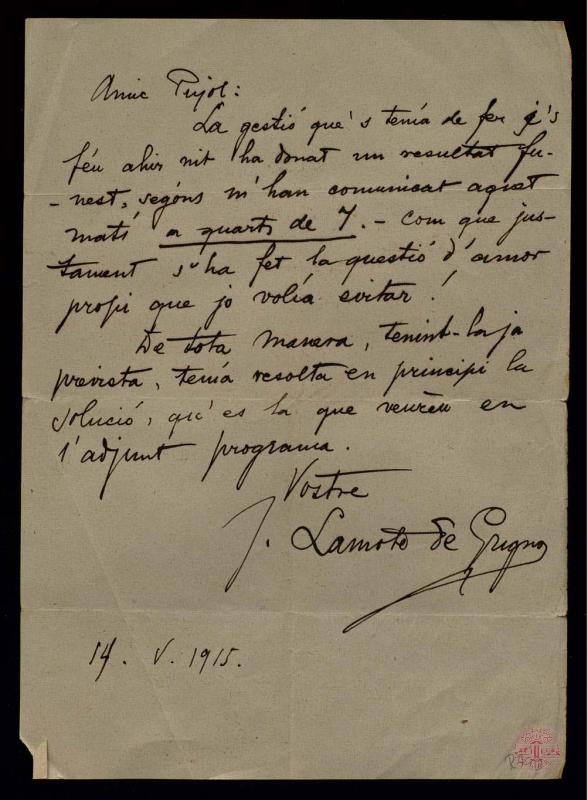 Amic Pujol:
La gestió que's tenía de fer i's
féu ahir nit ha donat un resultat fu-
-nest, segóns m'han comunicat aquet
matí a quarts de 7. - Com que jus-
tament s'ha fet la questió d'amor
propi que jo volía evitar!
De tota manera, tenint-la ja
prevista, tenía resolta en principi la
solució, qu'es la que veurèu en
l'adjunt programa.
Vostre
J. Lamote de Grignon
14. V. 1915.